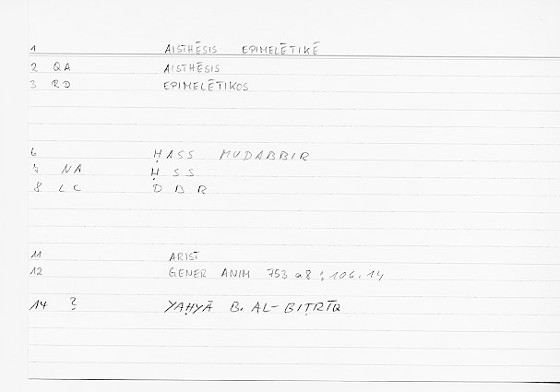 1 AISTHĒSIS EPIMELĒTIKĒ
2 QA AISTHĒSIS
3 RD EPIMELĒTIKOS
6 ḤASS MUDABBIR
7 NA ḤSS
8 LC DBR
11 ARIST
12 GENER ANIM 753 a8 ; 106.14
14 ? YAḤYĀ B. AL-BIṬRĪQ